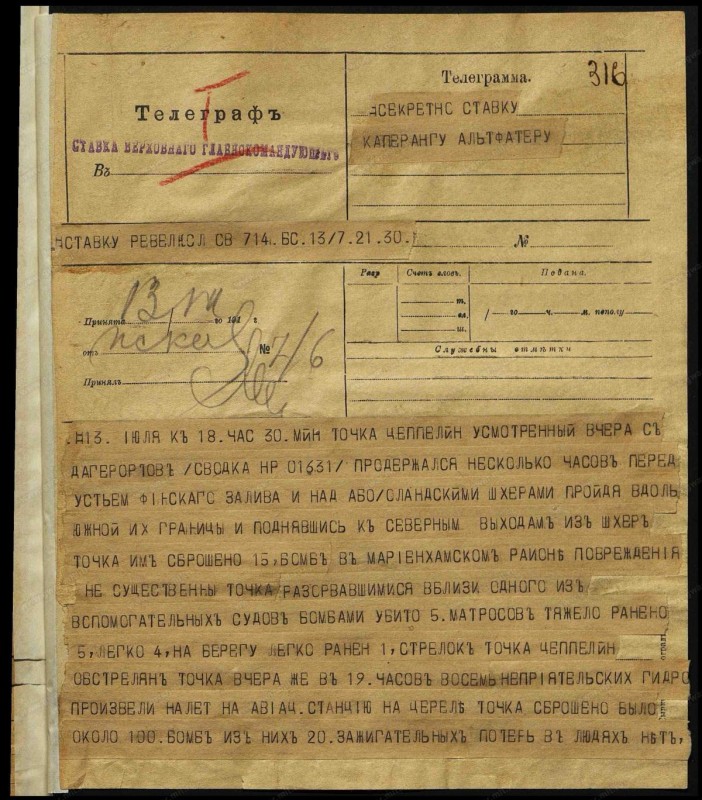 Телеграмма.
316
Телеграфъ
I
СЕКРЕТНО СТАВКУ
СТАВКА ВЕРХОВНАГО ГЛАВНОКОМАНДУЮЩАГО
КАПЕРАНГУ АЛЬТФАТЕРУ
Въ
СТАВКУ РЕВЕЛЯ СЛ СВ 714. БС. 13/7. 21. 30.
№
Разр
Счетъ словъ.
Подана.
т.
го ч. м. пополу
сл.
ш.
13 VII
Принята го 191 г.
отъ
№ 7/6
Служебны отмѣтки
Принялъ
13. ІЮЛЯ КЪ 18. ЧАС 30. МИН ТОЧКА ЦЕППЕЛИН УСМОТРЕННЫЙ ВЧЕРА СЪ
ДАГЕРОРТОВЪ /СВОДКА НР 01631/ ПРОДЕРЖАЛСЯ НЕСКОЛЬКО ЧАСОВЪ ПЕРЕД
УСТЬЕМ ФИНСКАГО ЗАЛИВА И НАД АБО/ОЛАНДСКИМИ ШХЕРАМИ ПРОЙДЯ ВДОЛЬ
ЮЖНОЙ ИХ ГРАНИЦЫ И ПОДНЯВШИСЬ КЪ СЕВЕРНЫМ ВЫХОДАМ ИЗЪ ШХЕРЪ
ТОЧКА ИМЪ СБРОШЕНО 15, БОМБЪ ВЪ МАРІЕНХАМСКОМ РАИОНѢ ПОВРЕЖДЕНІЯ
НЕ СУЩЕСТВЕННЫ ТОЧКА РАЗОРВАВШИМИСЯ ВБЛИЗИ ОДНОГО ИЗЪ
ВСПОМОГАТЕЛЬНЫХЪ СУДОВЪ БОМБАМИ УБИТО 5. МАТРОСОВЪ ТЯЖЕЛО РАНЕНО
5, ЛЕГКО 4, НА БЕРЕГУ ЛЕГКО РАНЕН 1, СТРЕЛОКЪ ТОЧКА ЦЕППЕЛИН
ОБСТРЕЛЯНЪ ТОЧКА ВЧЕРА ЖЕ ВЪ 19. ЧАСОВЪ ВОСЕМЬ НЕПРІЯТЕЛЬСКИХ ГИДРО
ПРОИЗВЕЛИ НАЛЕТ НА АВІАЦ. СТАНЦІЮ НА ЦЕРЕЛѢ ТОЧКА СБРОШЕНО БЫЛО
ОКОЛО 100. БОМБЪ ИЗЪ НИХЪ 20. ЗАЖИГАТЕЛЬНЫХ ПОТЕРЬ ВЪ ЛЮДЯХЪ НѢТЪ,